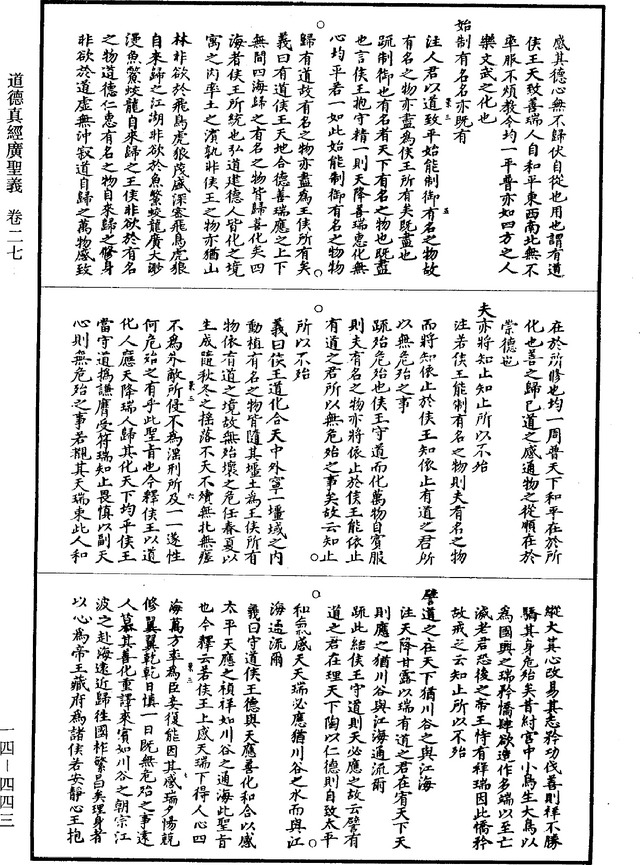 道德真經廣聖義　卷二七
感其德心無不歸伏自從也用也謂有道
侯王天致善瑞人自和平東西南北無不
率服不煩教令均一平普亦如四方之人
樂文武之化也
始制有名名亦既有
注人君以道致平始能制御有名之物故
有名之物亦盡為侯王所有矣既盡也
疏制御也有名者天下有名之物也既盡
也言侯王抱守精一則天降善瑞惠化無
心均平若一如此始能制御有名之物物
歸有道故有名之物亦盡為王侯所有矣
義曰有道侯王天地合德善瑞應之上下
無間四海歸之有名之物皆歸善化矣四
海者侯王所統也弘道建德人皆化之境
寓之內率土之濱孰非侯王之物亦猶山
林非欲於飛鳥虎狼茂盛深塞飛鳥虎狼
自來歸之江湖非欲於魚鱉蛟龍廣大渺
漫魚鱉蛟龍自來歸之王侯非欲於有名
之物道德仁惠有名之物自來歸之修身
非欲於道虛無沖寂道自歸之萬物感致
在於所修也均一周普天下和平在於所
化也善之歸已道之感通物之從順在於
崇德也
夫亦將知止知止所以不殆
注若侯王能制有名之物則夫有名之物
而將知依止於侯王知依止有道之君所
以無危殆之事
疏殆危殆也侯王守道而化萬物自賓服
則夫有名之物亦將依止於侯王能依止
有道之君所以無危殆之事矣故云知止
所以不殆
義曰侯王道化合天中外寧一壃域之內
動植有名之物皆隨其壃土為王侯所有
物依有道之境故無殆壞之危任春夏以
生成隨秋冬之搖落不夭不殰無札無瘥
不為外敵所侵不為濕刑所及一一遂性
何危殆之有乎此聖旨也今釋侯王以道
化人應天降瑞人歸其化天下均平侯王
當守道撝謙膺受符瑞知止畏慎以副天
心則無危殆之事若覩其天瑞東此人和
縱大其心改易其志矜功伐善則祥不勝
驕其身危殆矣昔紂宮中小鳥生大鳥以
為國興之瑞矜憍肆欲造作多端以至亡
滅老君恐後之帝王恃有祥瑞因此憍矜
故戒之云知止所以不殆
譬道之在天下猶川谷之與江海
注天降甘露以瑞有道之君在宥天下天
則應之猶川谷與江海通流爾
疏此結侯王守道則天必應之故云譬有
道之君在理天下陶以仁德則自致太平
和氣感天天瑞必應猶川谷之水而與江
海通流爾
義曰守道侯王德與天應善化和合以感
太平天應之禎祥如川谷之通海此聖旨
也今釋云若侯王上感天瑞下得人心四
海萬方率為臣妾復能因其感瑞夕惕兢
修翼翼乾乾日慎一日既無危殆之事遠
人慕其善化重譯來賓如川谷之朝宗江
波之赴海遠近歸往國祚繁昌矣理身者
以心為帝王藏府為諸侯若安靜心王抱
一四－四四三